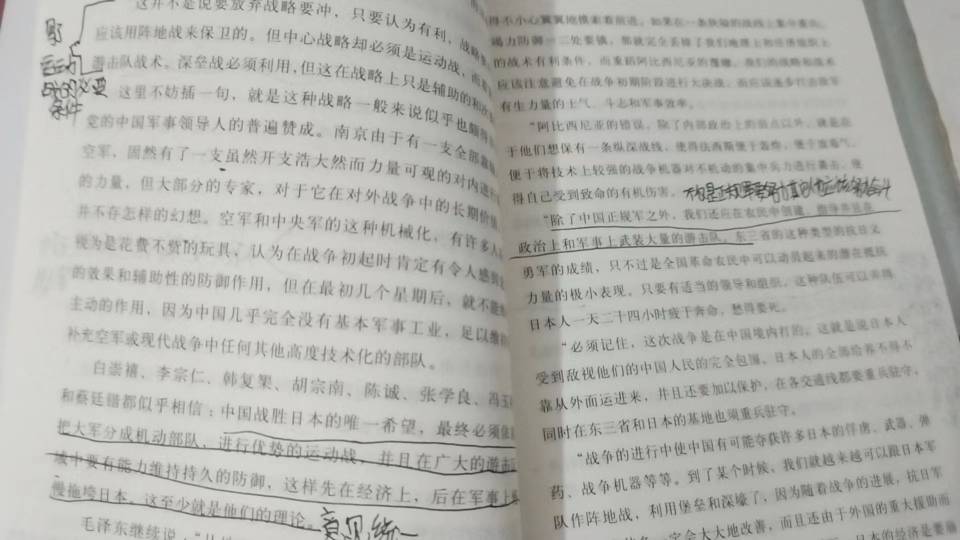 这并不是说要放弃战略要冲，只要认为有利，战略
应该用阵地战来保卫的。但中心战略却必须是运动战，而
游击队战术。深垒战必须利用，但这在战略上只是辅助的和次
这里不妨插一句，就是这种战略一般来说似乎也颇得
党的中国军事领导人的普遍赞成。南京由于有一支全部
空军，固然有了一支虽然开支浩大然而力量可观的对内进
的力量，但大部分的专家，对于它在对外战争中的长期价值
并不存怎样的幻想。空军和中央军的这种机械化，有许多人
视为是花费不赀的玩具，认为在战争初起时肯定有令人感到
的效果和辅助性的防御作用，但在最初几个星期后，就不能
主动的作用，因为中国几乎完全没有基本军事工业，足以维持
补充空军或现代战争中任何其他高度技术化的部队。
白崇禧、李宗仁、韩复榘、胡宗南、陈诚、张学良、冯玉
和蔡廷锴都似乎相信：中国战胜日本的唯一希望，最终必须依
把大军分成机动部队，进行优势的运动战，并且在广大的游击
域中要有能力维持持久的防御，这样先在经济上，后在军事上
慢拖垮日本。这至少就是他们的理论。
意见统一
毛泽东继续说：
运动
战的必要
条件
得不小心翼翼地摸索着前进。如果在一条狭隘的战线上集中重兵，
竭力防御一二处要镇，那就完全丢掉了我们地理上和经济组织上
的战术有利条件，而重蹈阿比西尼亚的覆辙。我们的战略和战术
应该注意避免在战争初期阶段进行大决战，而应该逐步打击敌军
有生力量的士气、斗志和军事效率。
“阿比西尼亚的错误，除了内部政治上的弱点以外，就是在
于他们想保有一条纵深战线，使得法西斯便于轰炸，便于放毒气，
便于将技术上较强的战争机器对不机动的集中兵力进行袭击，使
得自己受到致命的有机伤害。
“除了中国正规军之外，我们还应在农民中创建、指导并且在
政治上和军事上武装大量的游击队。东三省的这种类型的抗日义
勇军的成绩，只不过是全国革命农民中可以动员起来的潜在抵抗
力量的极小表现。只要有适当的领导和组织，这种队伍可以弄得
日本人一天二十四小时疲于奔命，愁得要死。
“必须记住，这次战争是在中国境内打的。这就是说日本人
受到敌视他们的中国人民的完全包围。日本人的全部给养不得不
靠从外面运进来，并且还要加以保护，在各交通线都要重兵驻守，
同时在东三省和日本的基地也须重兵驻守。
“战争的进行中使中国有可能夺获许多日本的俘虏、武器、弹
药、战争机器等等。到了某个时候，我们就越来越可以跟日本军
队作阵地战，利用堡垒和深壕了，因为随着战争的进展，抗日军
一定会大大地改善，而且还由于外国的重大援助而
日本的经济是要崩